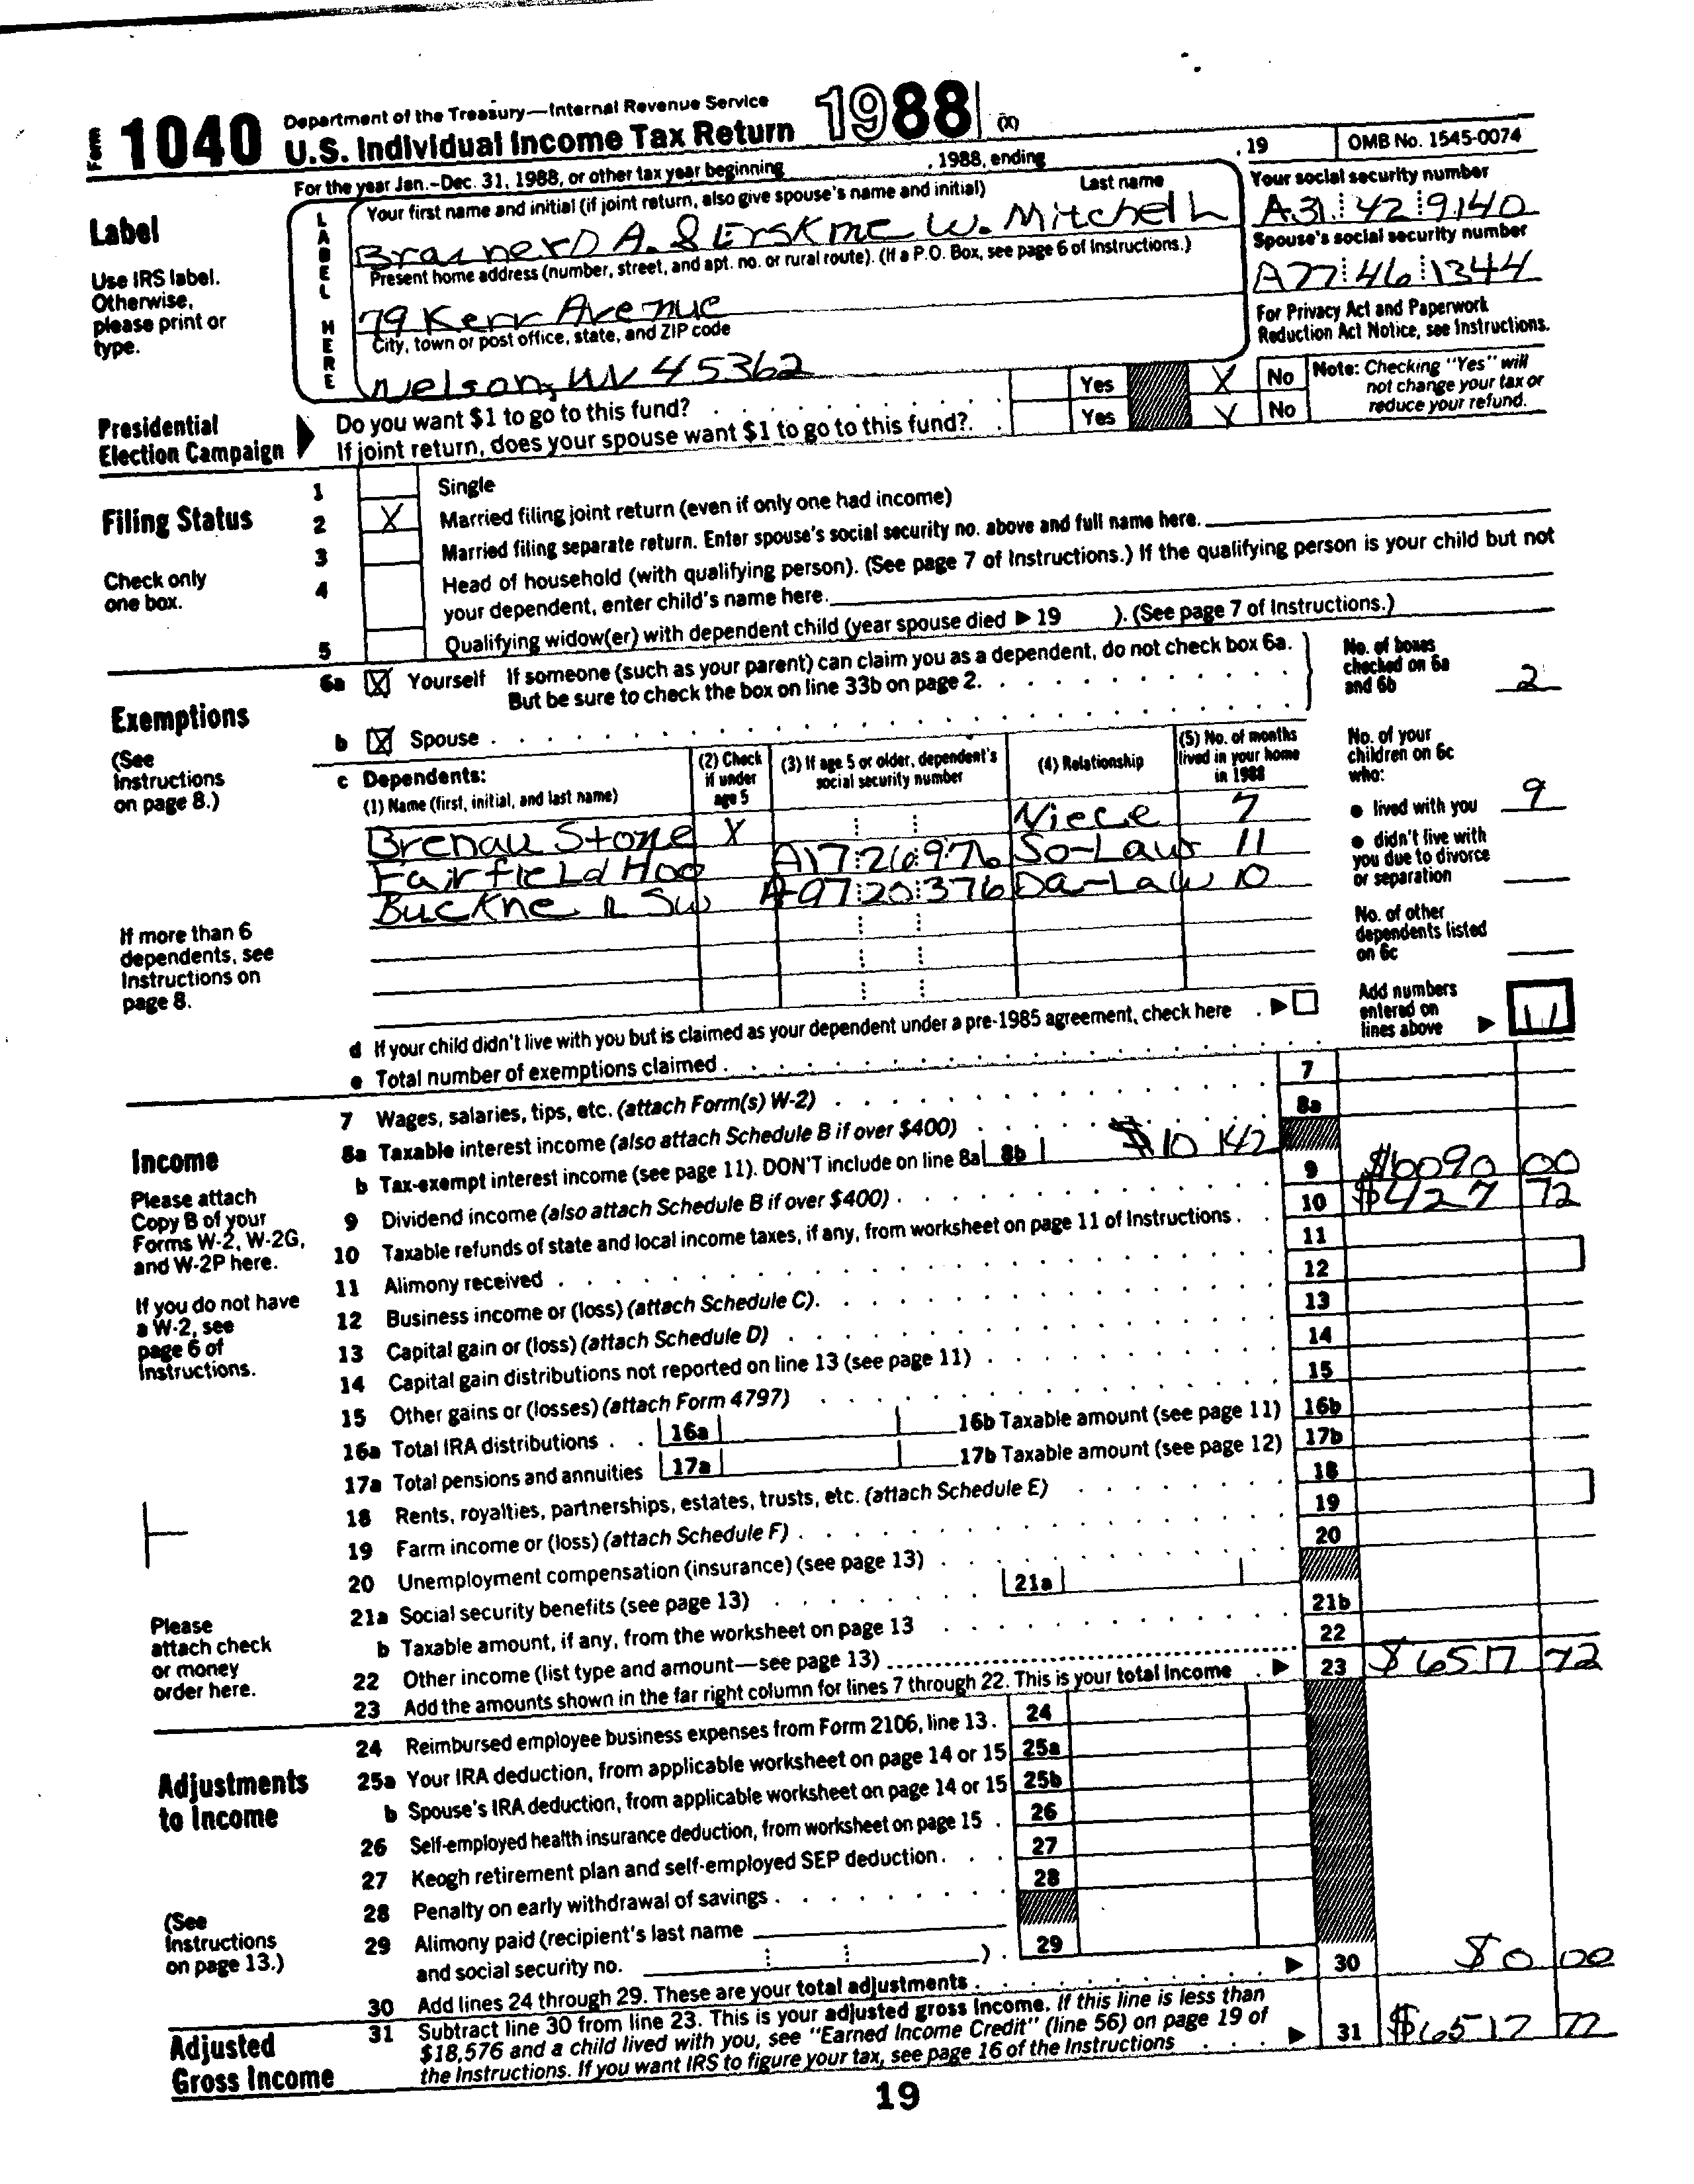 Form 1040 Department of the Treasury—Internal Revenue Service
U.S. Individual Income Tax Return 1988 (X)
For the year Jan.–Dec. 31, 1988, or other tax year beginning , 1988, ending , 19 OMB No. 1545-0074
Label
Use IRS label. Otherwise, please print or type.
LABEL HERE
Your first name and initial (if joint return, also give spouse's name and initial) Last name
Brainerd A. & Erskine W. Mitchell
Your social security number
A31 42 9140
Present home address (number, street, and apt. no. or rural route). (If a P.O. Box, see page 6 of Instructions.)
79 Kerr Avenue
Spouse's social security number
A77 46 1344
City, town or post office, state, and ZIP code
Nelson, WV 45362
For Privacy Act and Paperwork Reduction Act Notice, see Instructions.
Presidential Election Campaign
Do you want $1 to go to this fund? Yes X No
If joint return, does your spouse want $1 to go to this fund?. Yes X No
Note: Checking "Yes" will not change your tax or reduce your refund.
Filing Status
Check only one box.
1 Single
2 X Married filing joint return (even if only one had income)
3 Married filing separate return. Enter spouse's social security no. above and full name here.
4 Head of household (with qualifying person). (See page 7 of Instructions.) If the qualifying person is your child but not
your dependent, enter child's name here.
5 Qualifying widow(er) with dependent child (year spouse died ▶ 19 ). (See page 7 of Instructions.)
Exemptions
(See Instructions on page 8.)
6a X Yourself If someone (such as your parent) can claim you as a dependent, do not check box 6a.
But be sure to check the box on line 33b on page 2.
b X Spouse
No. of boxes checked on 6a and 6b 2
c Dependents:
(1) Name (first, initial, and last name) (2) Check if under age 5 (3) If age 5 or older, dependent's social security number (4) Relationship (5) No. of months lived in your home in 1988
Brenau Stone X Niece 7
Fairfield Hoo A17 26 976 So-Law 11
Buckne R Sw A97 20 376 Da-Law 10
No. of your children on 6c who:
● lived with you 9
● didn't live with you due to divorce or separation
No. of other dependents listed on 6c
If more than 6 dependents, see Instructions on page 8.
d If your child didn't live with you but is claimed as your dependent under a pre-1985 agreement, check here ▶
e Total number of exemptions claimed
Add numbers entered on lines above ▶ 11
Income
Please attach Copy B of your Forms W-2, W-2G, and W-2P here.
If you do not have a W-2, see page 6 of Instructions.
Please attach check or money order here.
7 Wages, salaries, tips, etc. (attach Form(s) W-2) 7
8a Taxable interest income (also attach Schedule B if over $400) 8a
b Tax-exempt interest income (see page 11). DON'T include on line 8a 8b $10 142
9 Dividend income (also attach Schedule B if over $400) 9 $6090 00
10 Taxable refunds of state and local income taxes, if any, from worksheet on page 11 of Instructions 10 $427 72
11 Alimony received 11
12 Business income or (loss) (attach Schedule C). 12
13 Capital gain or (loss) (attach Schedule D) 13
14 Capital gain distributions not reported on line 13 (see page 11) 14
15 Other gains or (losses) (attach Form 4797) 15
16a Total IRA distributions 16a 16b Taxable amount (see page 11) 16b
17a Total pensions and annuities 17a 17b Taxable amount (see page 12) 17b
18 Rents, royalties, partnerships, estates, trusts, etc. (attach Schedule E) 18
19 Farm income or (loss) (attach Schedule F) 19
20 Unemployment compensation (insurance) (see page 13) 20
21a Social security benefits (see page 13) 21a
b Taxable amount, if any, from the worksheet on page 13 21b
22 Other income (list type and amount—see page 13) 22
23 Add the amounts shown in the far right column for lines 7 through 22. This is your total income ▶ 23 $6517 72
Adjustments to Income
(See Instructions on page 13.)
24 Reimbursed employee business expenses from Form 2106, line 13. 24
25a Your IRA deduction, from applicable worksheet on page 14 or 15 25a
b Spouse's IRA deduction, from applicable worksheet on page 14 or 15 25b
26 Self-employed health insurance deduction, from worksheet on page 15 26
27 Keogh retirement plan and self-employed SEP deduction 27
28 Penalty on early withdrawal of savings 28
29 Alimony paid (recipient's last name
and social security no. ) 29
30 Add lines 24 through 29. These are your total adjustments ▶ 30 $0 00
Adjusted Gross Income
31 Subtract line 30 from line 23. This is your adjusted gross income. If this line is less than
$18,576 and a child lived with you, see "Earned Income Credit" (line 56) on page 19 of
the Instructions. If you want IRS to figure your tax, see page 16 of the Instructions ▶ 31 $6517 72
19